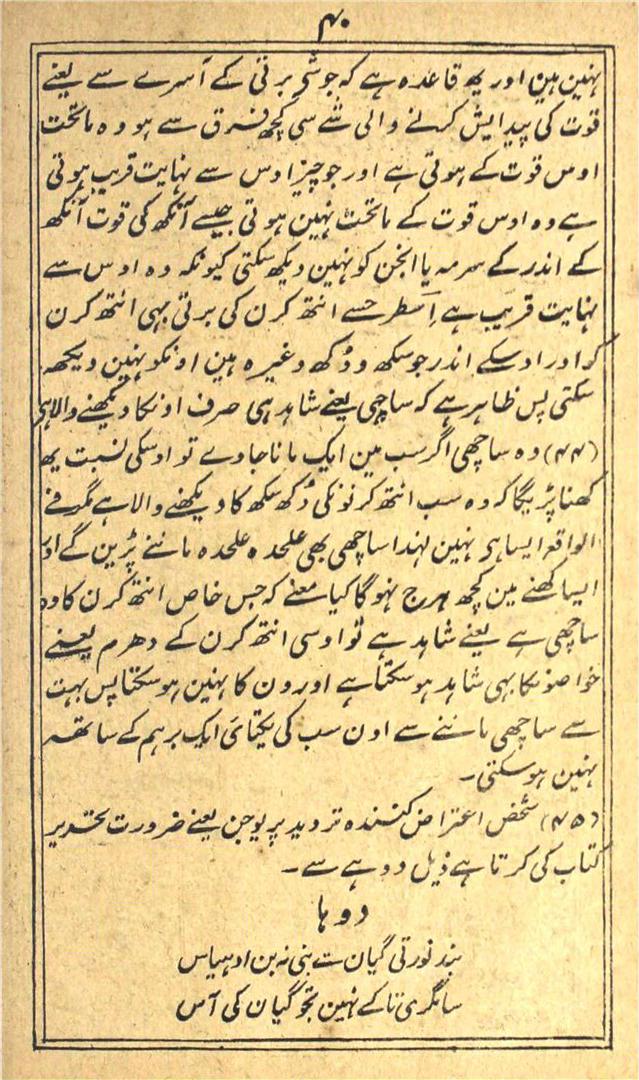 ۴۰
نہین ہین اور یہ قاعدہ ہے کہ جو شی برتی کے آسرے سے یعنے
قوت کی پیدایش کرنے والی شے سی کچھ فرق سے ہو وہ ماتحت
اوس قوت کے ہوتی ہے اور جو چیز اوس سے نہایت قریب ہوتی
ہے وہ اوس قوت کے ماتحت نہین ہوتی جیسے آنکھ کی قوت آنکھ
کے اندر کے سرمہ یا انجن کو نہین دیکھ سکتی کیونکہ وہ اوس سے
نہایت قریب ہے اِسطرحسے انتھ کرن کی برتی بہی انتھ کرن
کو اور اوسکے اندر جو سکھ و دُکھ وغیرہ ہین اونکو نہین دیکھہ
سکتی پس ظاہر ہے کہ ساچہی یعنے شاہد ہی صرف اونکا دیکھنے والا ہی
(۴۴) وہ ساچھی اگر سب مین ایک مانا جاوے تو اوسکی نسبت یہ
کہنا پڑیگا کہ وہ سب انتھ کرنونکی دُکھ سکھ کا دیکھنے والا ہے مگر فے
الواقع ایسا ہی نہین لہٰذا ساچھی بھی علحدہ علحدہ ماننے پڑین گے اور
ایسا کھنے مین کچھ ہرج نہوگا کیا معنے کہ جس خاص انتھ کرن کا وہ
ساچھی ہے یعنے شاہد ہے تو اوسی انتھ کرن کے دھرم یعنے
خواصونکا بہی شاہد ہو سکتا ہے اورون کا نہین ہو سکتا پس بہت
سے ساچھی ماننے سے اون سب کی یکتائ ایک برہم کے ساتھہ
نہین ہو سکتی۔
(۴۵) شخص اعتراض کنندہ تردید پریوجن یعنے ضرورت تحریر
کتاب کی کرتا ہے ذیل دوہے سے۔
دوہا
بند نورتی گیان تے بنی نہ بن ادہیاس
سانگری تاکے نہین تجو گیان کی آس